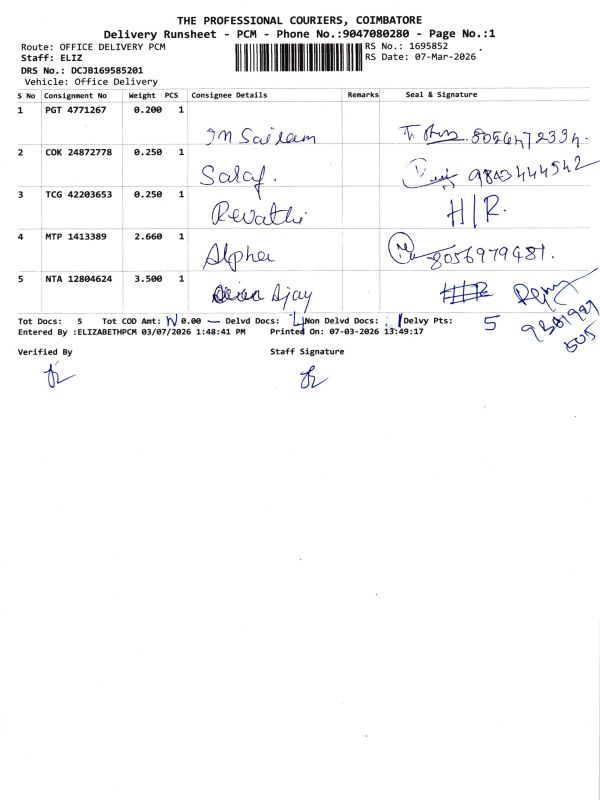 THE PROFESSIONAL COURIERS, COIMBATORE
Delivery Runsheet - PCM - Phone No.:9047080280 - Page No.:1
Route: OFFICE DELIVERY PCM RS No.: 1695852
Staff: ELIZ RS Date: 07-Mar-2026
DRS No.: DCJB169585201
Vehicle: Office Delivery
S No Consignment No Weight PCS Consignee Details Remarks Seal & Signature
1 PGT 4771267 0.200 1
Sairam
2 COK 24872778 0.250 1
Saraf. 9843444542
3 TCG 42203653 0.250 1
Revathi H/R.
4 MTP 1413389 2.660 1
Alpha 8056979481.
5 NTA 12804624 3.500 1
Ajay
Tot Docs: 5 Tot COD Amt: N 0.00 — Delvd Docs: 4 Non Delvd Docs: 1 Delvy Pts: 5
Entered By :ELIZABETHPCM 03/07/2026 1:48:41 PM Printed On: 07-03-2026 13:49:17
Verified By Staff Signature